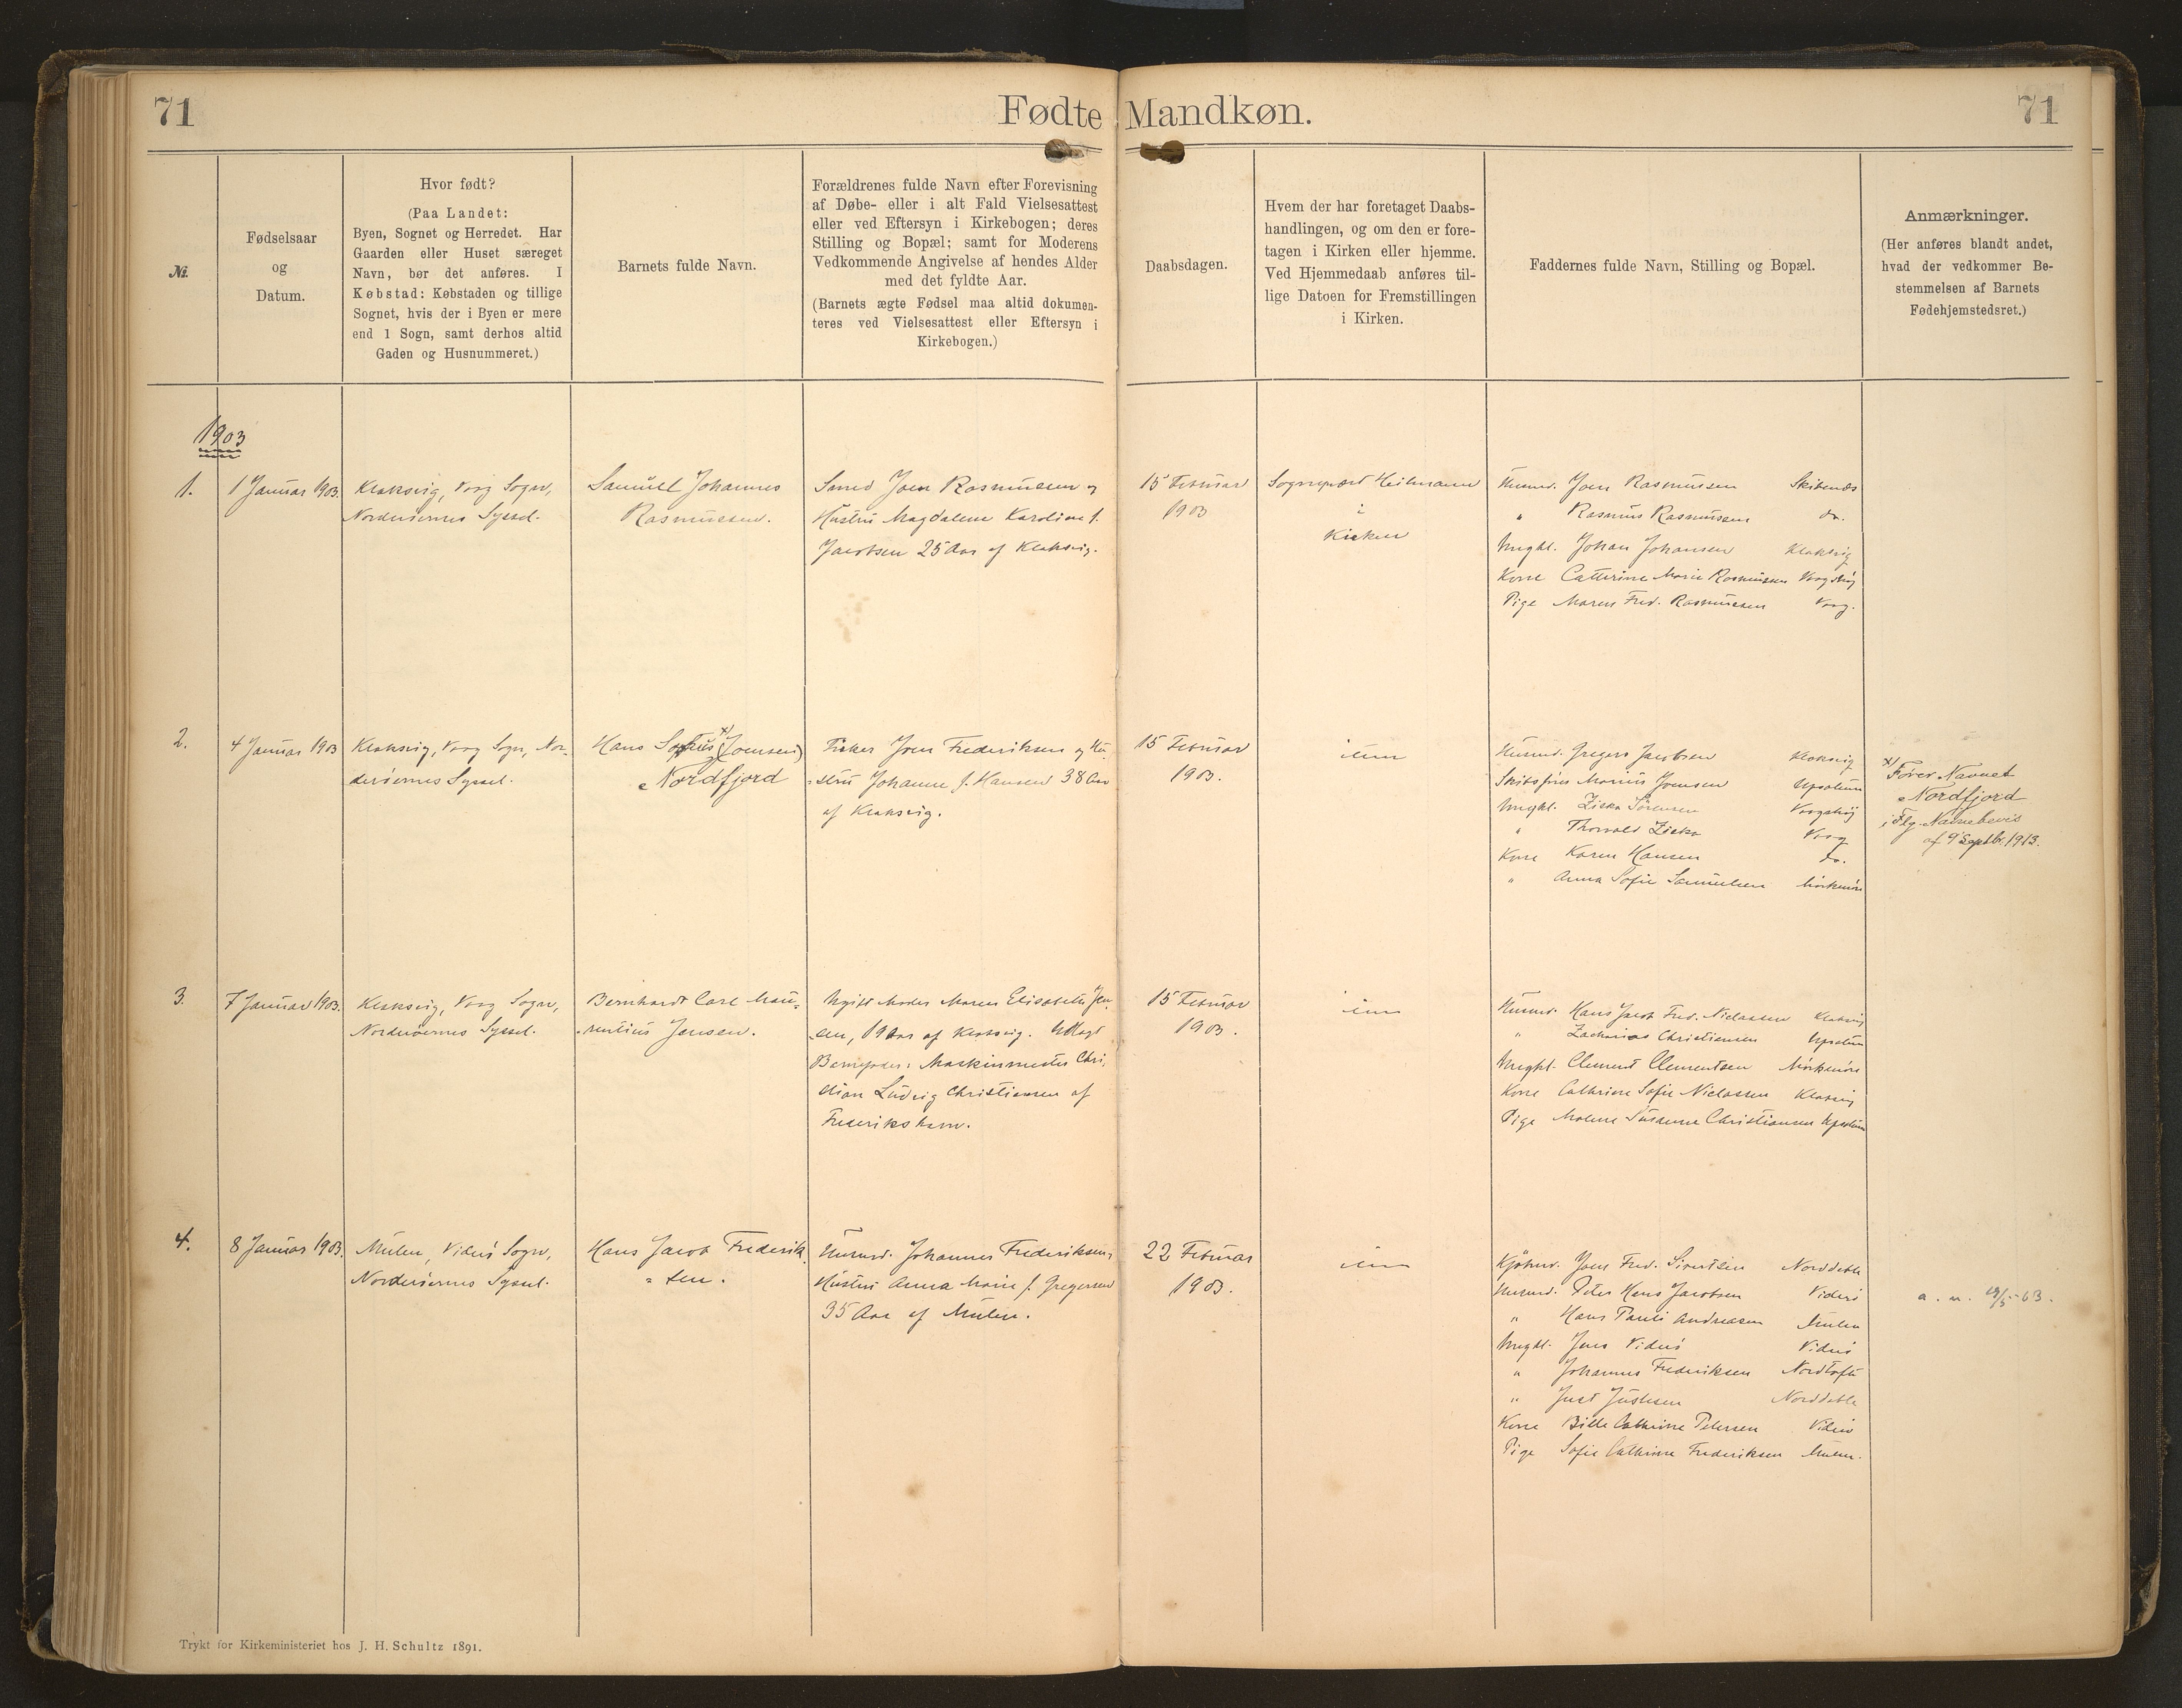 71
Fødte Mandkøn.
71
№.
Fødselsaar
og
Datum.
Hvor født?
(Paa Landet:
Byen, Sognet og Herredet. Har
Gaarden eller Huset særeget
Navn, bør det anføres. I
Købstad: Købstaden og tillige
Sognet, hvis der i Byen er mere
end 1 Sogn, samt derhos altid
Gaden og Husnummeret.)
Barnets fulde Navn.
Forældrenes fulde Navn efter Forevisning
af Døbe- eller i alt Fald Vielsesattest
eller ved Eftersyn i Kirkebogen; deres
Stilling og Bopæl; samt for Moderens
Vedkommende Angivelse af hendes Alder
med det fyldte Aar.
(Barnets ægte Fødsel maa altid dokumen-
teres ved Vielsesattest eller Eftersyn i
Kirkebogen.)
Daabsdagen.
Hvem der har foretaget Daabs-
handlingen, og om den er fore-
tagen i Kirken eller hjemme.
Ved Hjemmedaab anføres til-
lige Datoen for Fremstillingen
i Kirken.
Faddernes fulde Navn, Stilling og Bopæl.
Anmærkninger.
(Her anføres blandt andet,
hvad der vedkommer Be-
stemmelsen af Barnets
Fødehjemstedsret.)
1903
1.
1 Januar 1903.
Klaksvig, Vaag Sogn,
Norderøernes Syssel.
Samuel Johannes
Rasmussen.
Smed Joen Rasmussen og
Hustru Magdalene Karoline f.
Jacobsen 25 Aar af Klaksvig.
15 Februar
1903
Sognepræst Heilmann
i
Kirken
Husmd. Joen Rasmussen Skibenæs
" Rasmus Rasmussen do.
Ungkl. Johan Johansen Klaksvig
Kone Catterine Marie Rasmussen Vaagstøj
Pige Maren Fred. Rasmussen Vaag.
2.
4 Januar 1903
Klaksvig, Vaag Sogn, Nor-
derøernes Syssel.
Hans Sofus x) (Joensen)
Nordfjord
Fisker Joen Frederiksen og Hu-
stru Johanne f. Hansen 38 Aar
af Klaksvig.
15 Februar
1903.
idem
Husmd. Gregers Jacobsen Klaksvig
Skibsfører Marius Joensen Upsalum
Ungkl. Ziska Sørensen Vaagstøj
" Thorvald Ziska Vaag
Kone Karen Hansen do.
" Anna Sofie Samuelsen Mørkenøre
x) Fører Navnet
Nordfjord
iflg. Navnebevis
af 9 Septbr. 1913.
3.
7 Januar 1903.
Klaksvig, Vaag Sogn,
Norderøernes Syssel.
Bernhardt Carl Mau-
-rentius Jensen.
Ugift Moder Maren Elisabeth Jen-
sen, 19 Aar af Klaksvig. Udlagt
Barnefader: Maskinmester Chri-
stian Ludvig Christiansen af
Frederikshavn.
15 Februar
1903.
idem
Husmd. Hans Jacob Fred. Niclassen Klaksvig
" Zacharias Christiansen Upsalum
Ungkl. Clement Clementsen Mørkenøre
Kone Cathrine Sofie Niclassen Klaksvig
Pige Malene Susanne Christiansen Upsalum
4.
8 Januar 1903.
Mulen, Viderø Sogn,
Norderøernes Syssel.
Hans Jacob Frederik
= sen.
Husmd. Johannes Frederiksen,
Hustru Anna Marie f. Gregersen
35 Aar af Mulen.
22 Februar
1903.
idem
Kjøbmd. Joen Fred. Sivertsen Norddeble
Husmd. Peter Hans Jacobsen Viderø
" Hans Pauli Andreasen Mulen
Ungkl. Jens Viderø Viderø
" Johannes Frederiksen Nordtofte
" Just Justesen Norddeble
Kone Bille Cathrine Petersen Viderø
Pige Sofie Cathrine Frederiksen Mulen.
Trykt for Kirkeministeriet hos J. H. Schultz 1891.